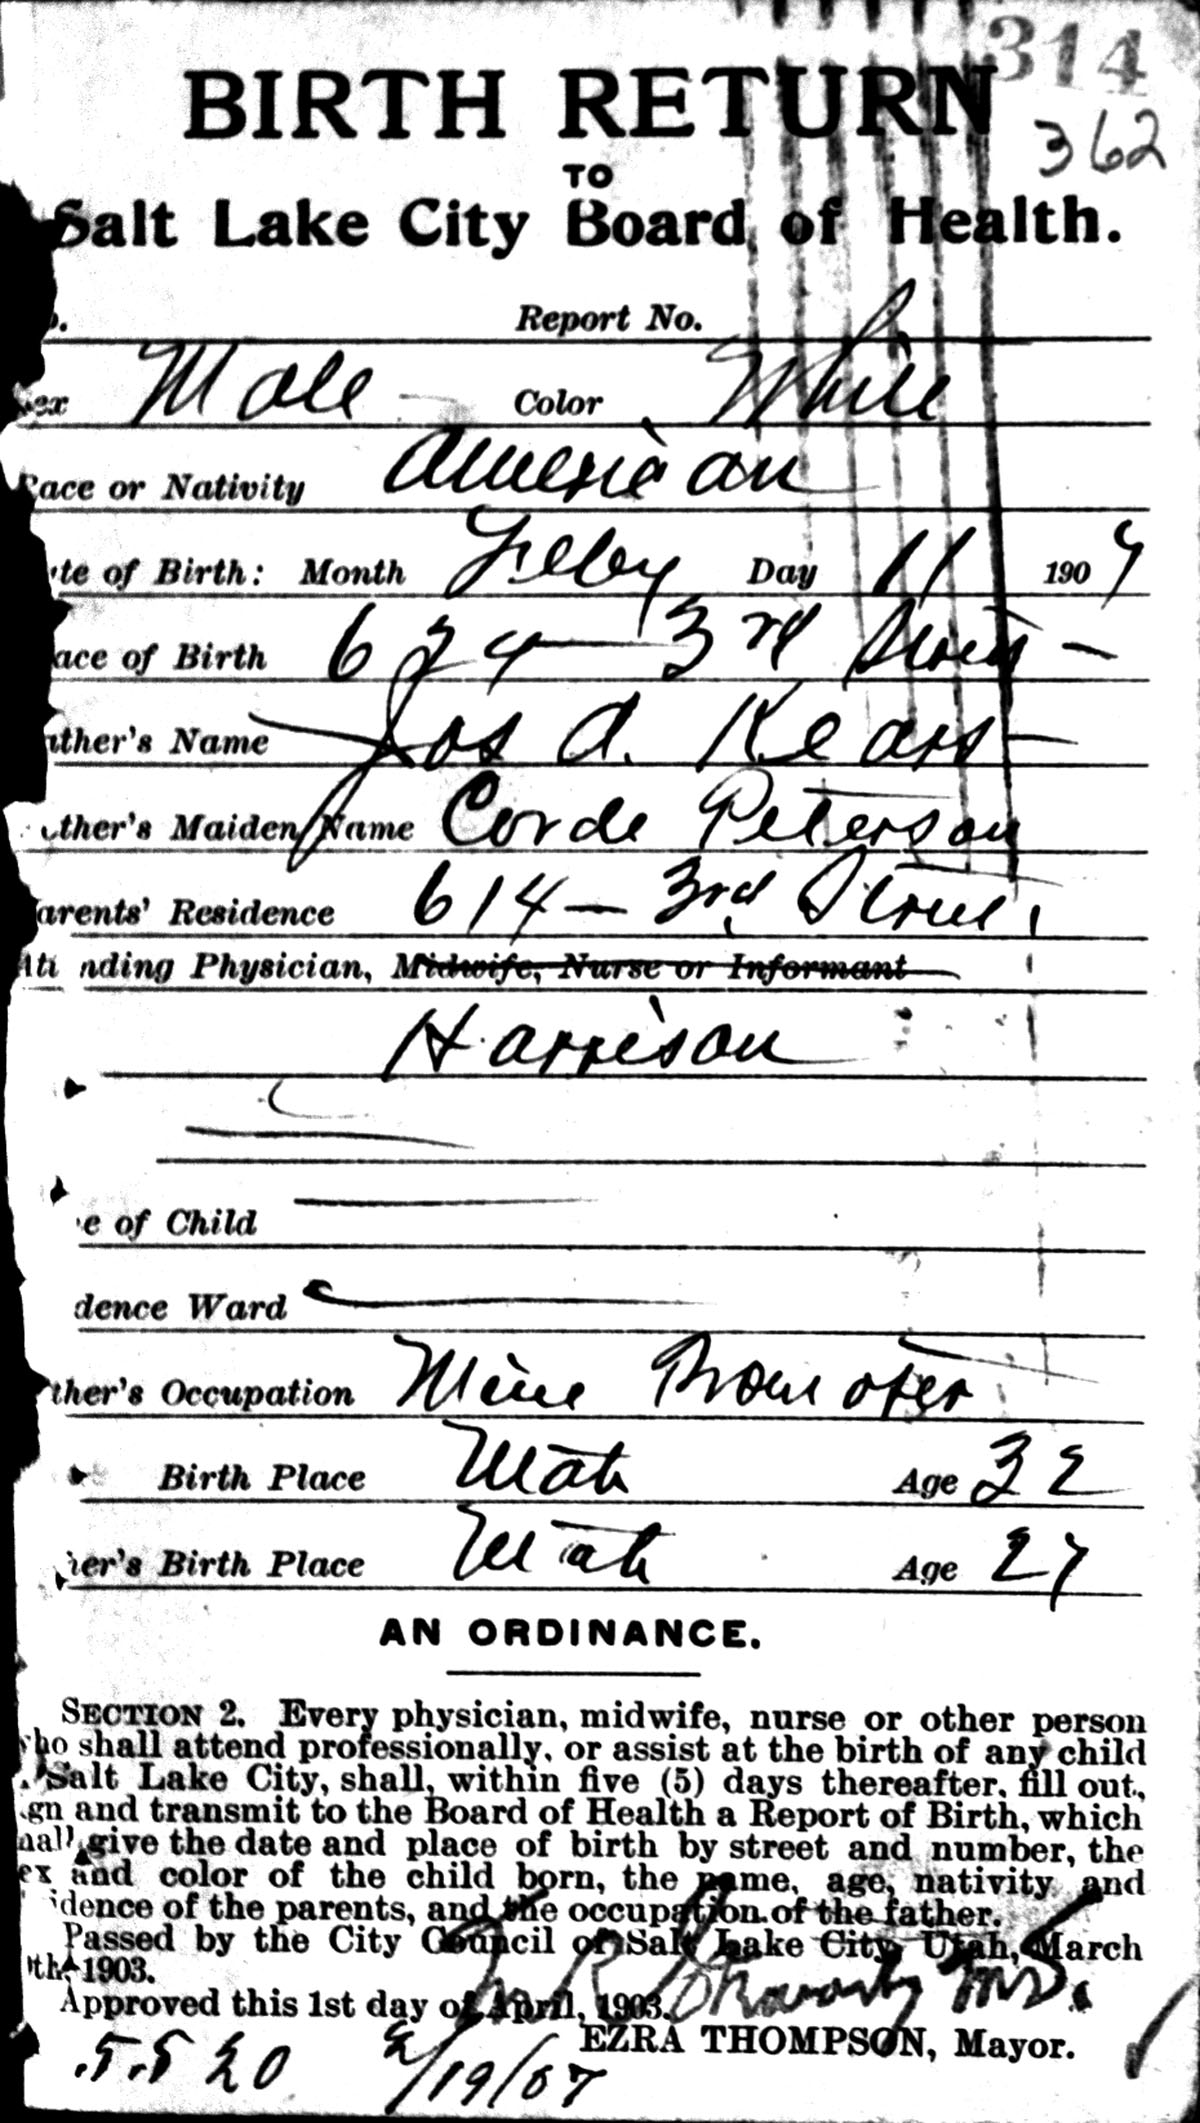 314
BIRTH RETURN
362
TO
Salt Lake City Board of Health.
o. Report No.
Sex Male Color White
Race or Nativity American
te of Birth: Month Feby Day 11 1907
ace of Birth 624 - 3rd Street -
ather's Name Jos A. Kears
other's Maiden Name Corde Peterson
arents' Residence 614 - 3rd Street
Att nding Physician, Midwife, Nurse or Informant
Harrison
e of Child
dence Ward
ther's Occupation Mine Promoter
Birth Place Utah Age 32
her's Birth Place Utah Age 27
AN ORDINANCE.
SECTION 2. Every physician, midwife, nurse or other person
who shall attend professionally, or assist at the birth of any child
Salt Lake City, shall, within five (5) days thereafter, fill out,
gn and transmit to the Board of Health a Report of Birth, which
hall give the date and place of birth by street and number, the
ex and color of the child born, the name, age, nativity and
idence of the parents, and the occupation of the father.
Passed by the City Council of Salt Lake City, Utah, March
th, 1903.
Approved this 1st day of April, 1903.
EZRA THOMPSON, Mayor.
2/19/07